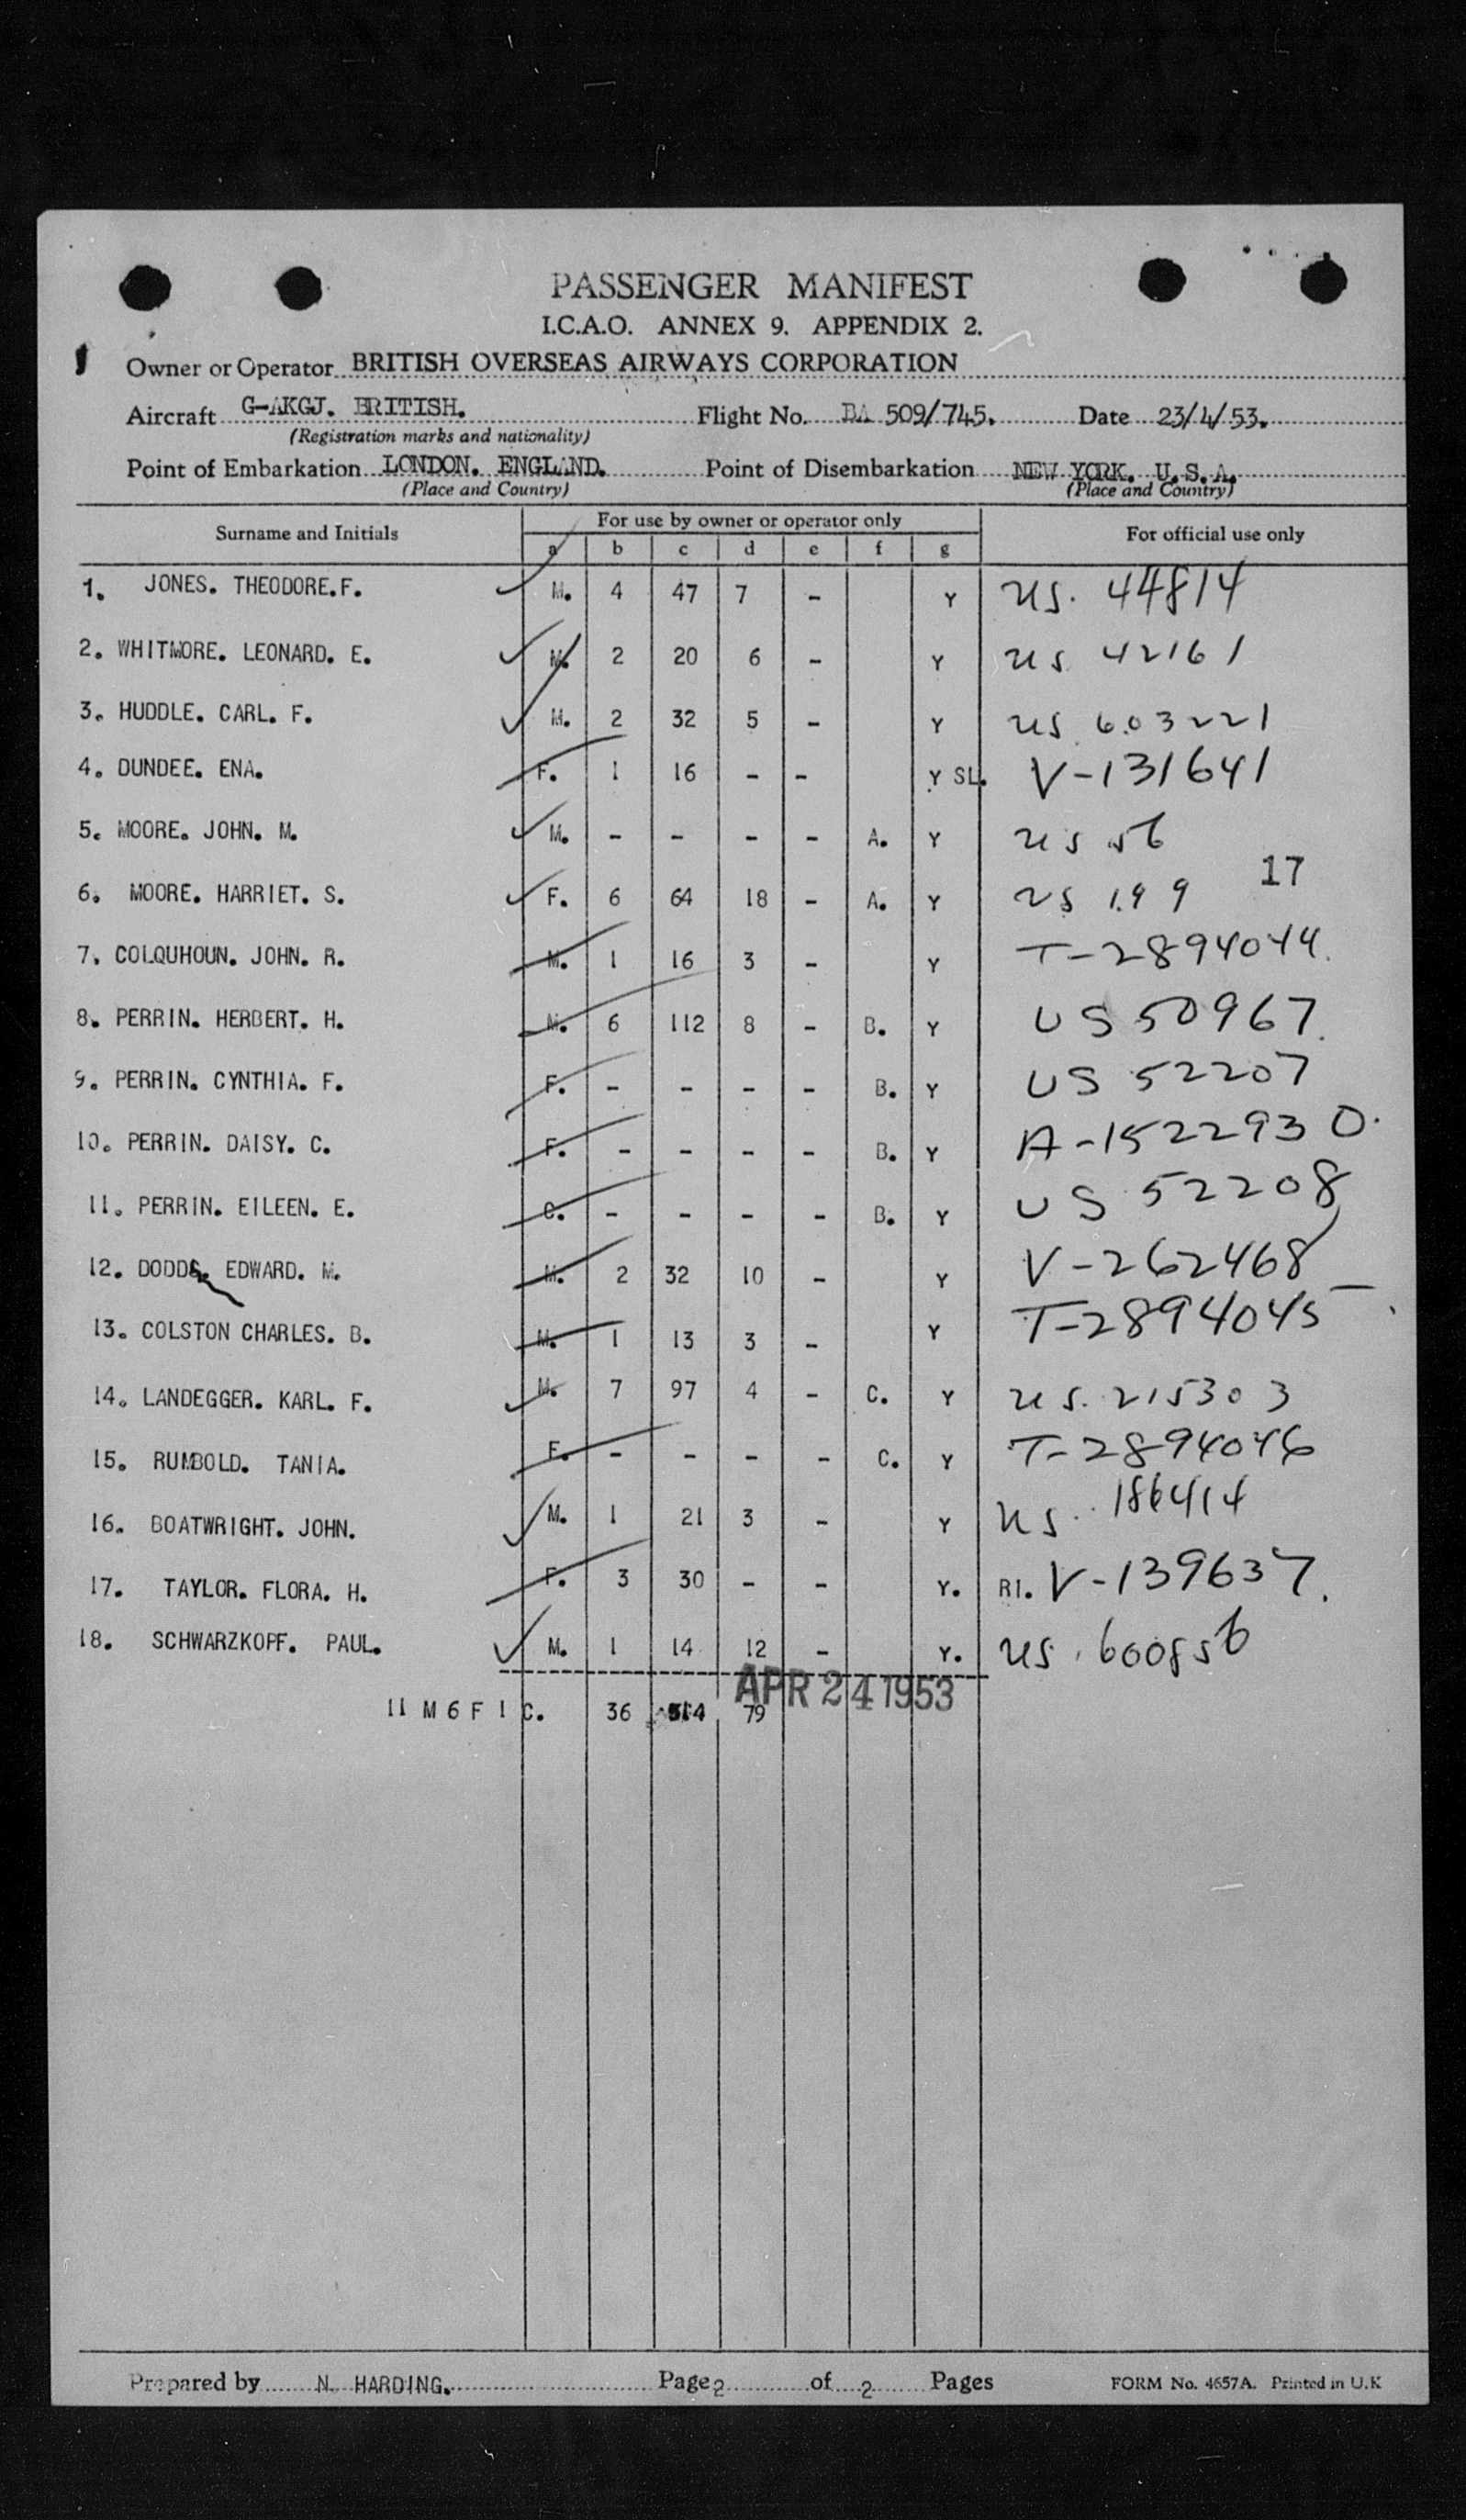 PASSENGER MANIFEST
I.C.A.O. ANNEX 9. APPENDIX 2.
Owner or Operator BRITISH OVERSEAS AIRWAYS CORPORATION
Aircraft G-AKGJ. BRITISH. Flight No. BA 509/745. Date 23/4/53.
(Registration marks and nationality)
Point of Embarkation LONDON. ENGLAND. Point of Disembarkation NEW YORK. U.S.A.
(Place and Country) (Place and Country)
Surname and Initials For use by owner or operator only For official use only
a b c d e f g
1. JONES. THEODORE.F. M. 4 47 7 - Y US. 44814
2. WHITMORE. LEONARD. E. M. 2 20 6 - Y US 42161
3. HUDDLE. CARL. F. M. 2 32 5 - Y US 603221
4. DUNDEE. ENA. F. 1 16 - - Y SL. V-131641
5. MOORE. JOHN. M. M. - - - - A. Y US 56
17
6. MOORE. HARRIET. S. F. 6 64 18 - A. Y US 199
7. COLQUHOUN. JOHN. R. M. 1 16 3 - Y T-2894044.
8. PERRIN. HERBERT. H. M. 6 112 8 - B. Y US 50967.
9. PERRIN. CYNTHIA. F. F. - - - - B. Y US 52207
10. PERRIN. DAISY. C. F. - - - - B. Y A-1522930.
11. PERRIN. EILEEN. E. C. - - - - B. Y US 52208
12. DODDS. EDWARD. M. M. 2 32 10 - Y V-262468
13. COLSTON CHARLES. B. M. 1 13 3 - Y T-2894045
14. LANDEGGER. KARL. F. M. 7 97 4 - C. Y US. 215303
15. RUMBOLD. TANIA. F. - - - - C. Y T-2894046
16. BOATWRIGHT. JOHN. M. 1 21 3 - Y US. 186414
17. TAYLOR. FLORA. H. F. 3 30 - - Y. RI. V-139637.
18. SCHWARZKOPF. PAUL. M. 1 14 12 - Y. US. 600856
APR 24 1953
11 M 6 F 1 C. 36 514 79
Prepared by N. HARDING. Page 2 of 2 Pages FORM No. 4657A. Printed in U.K